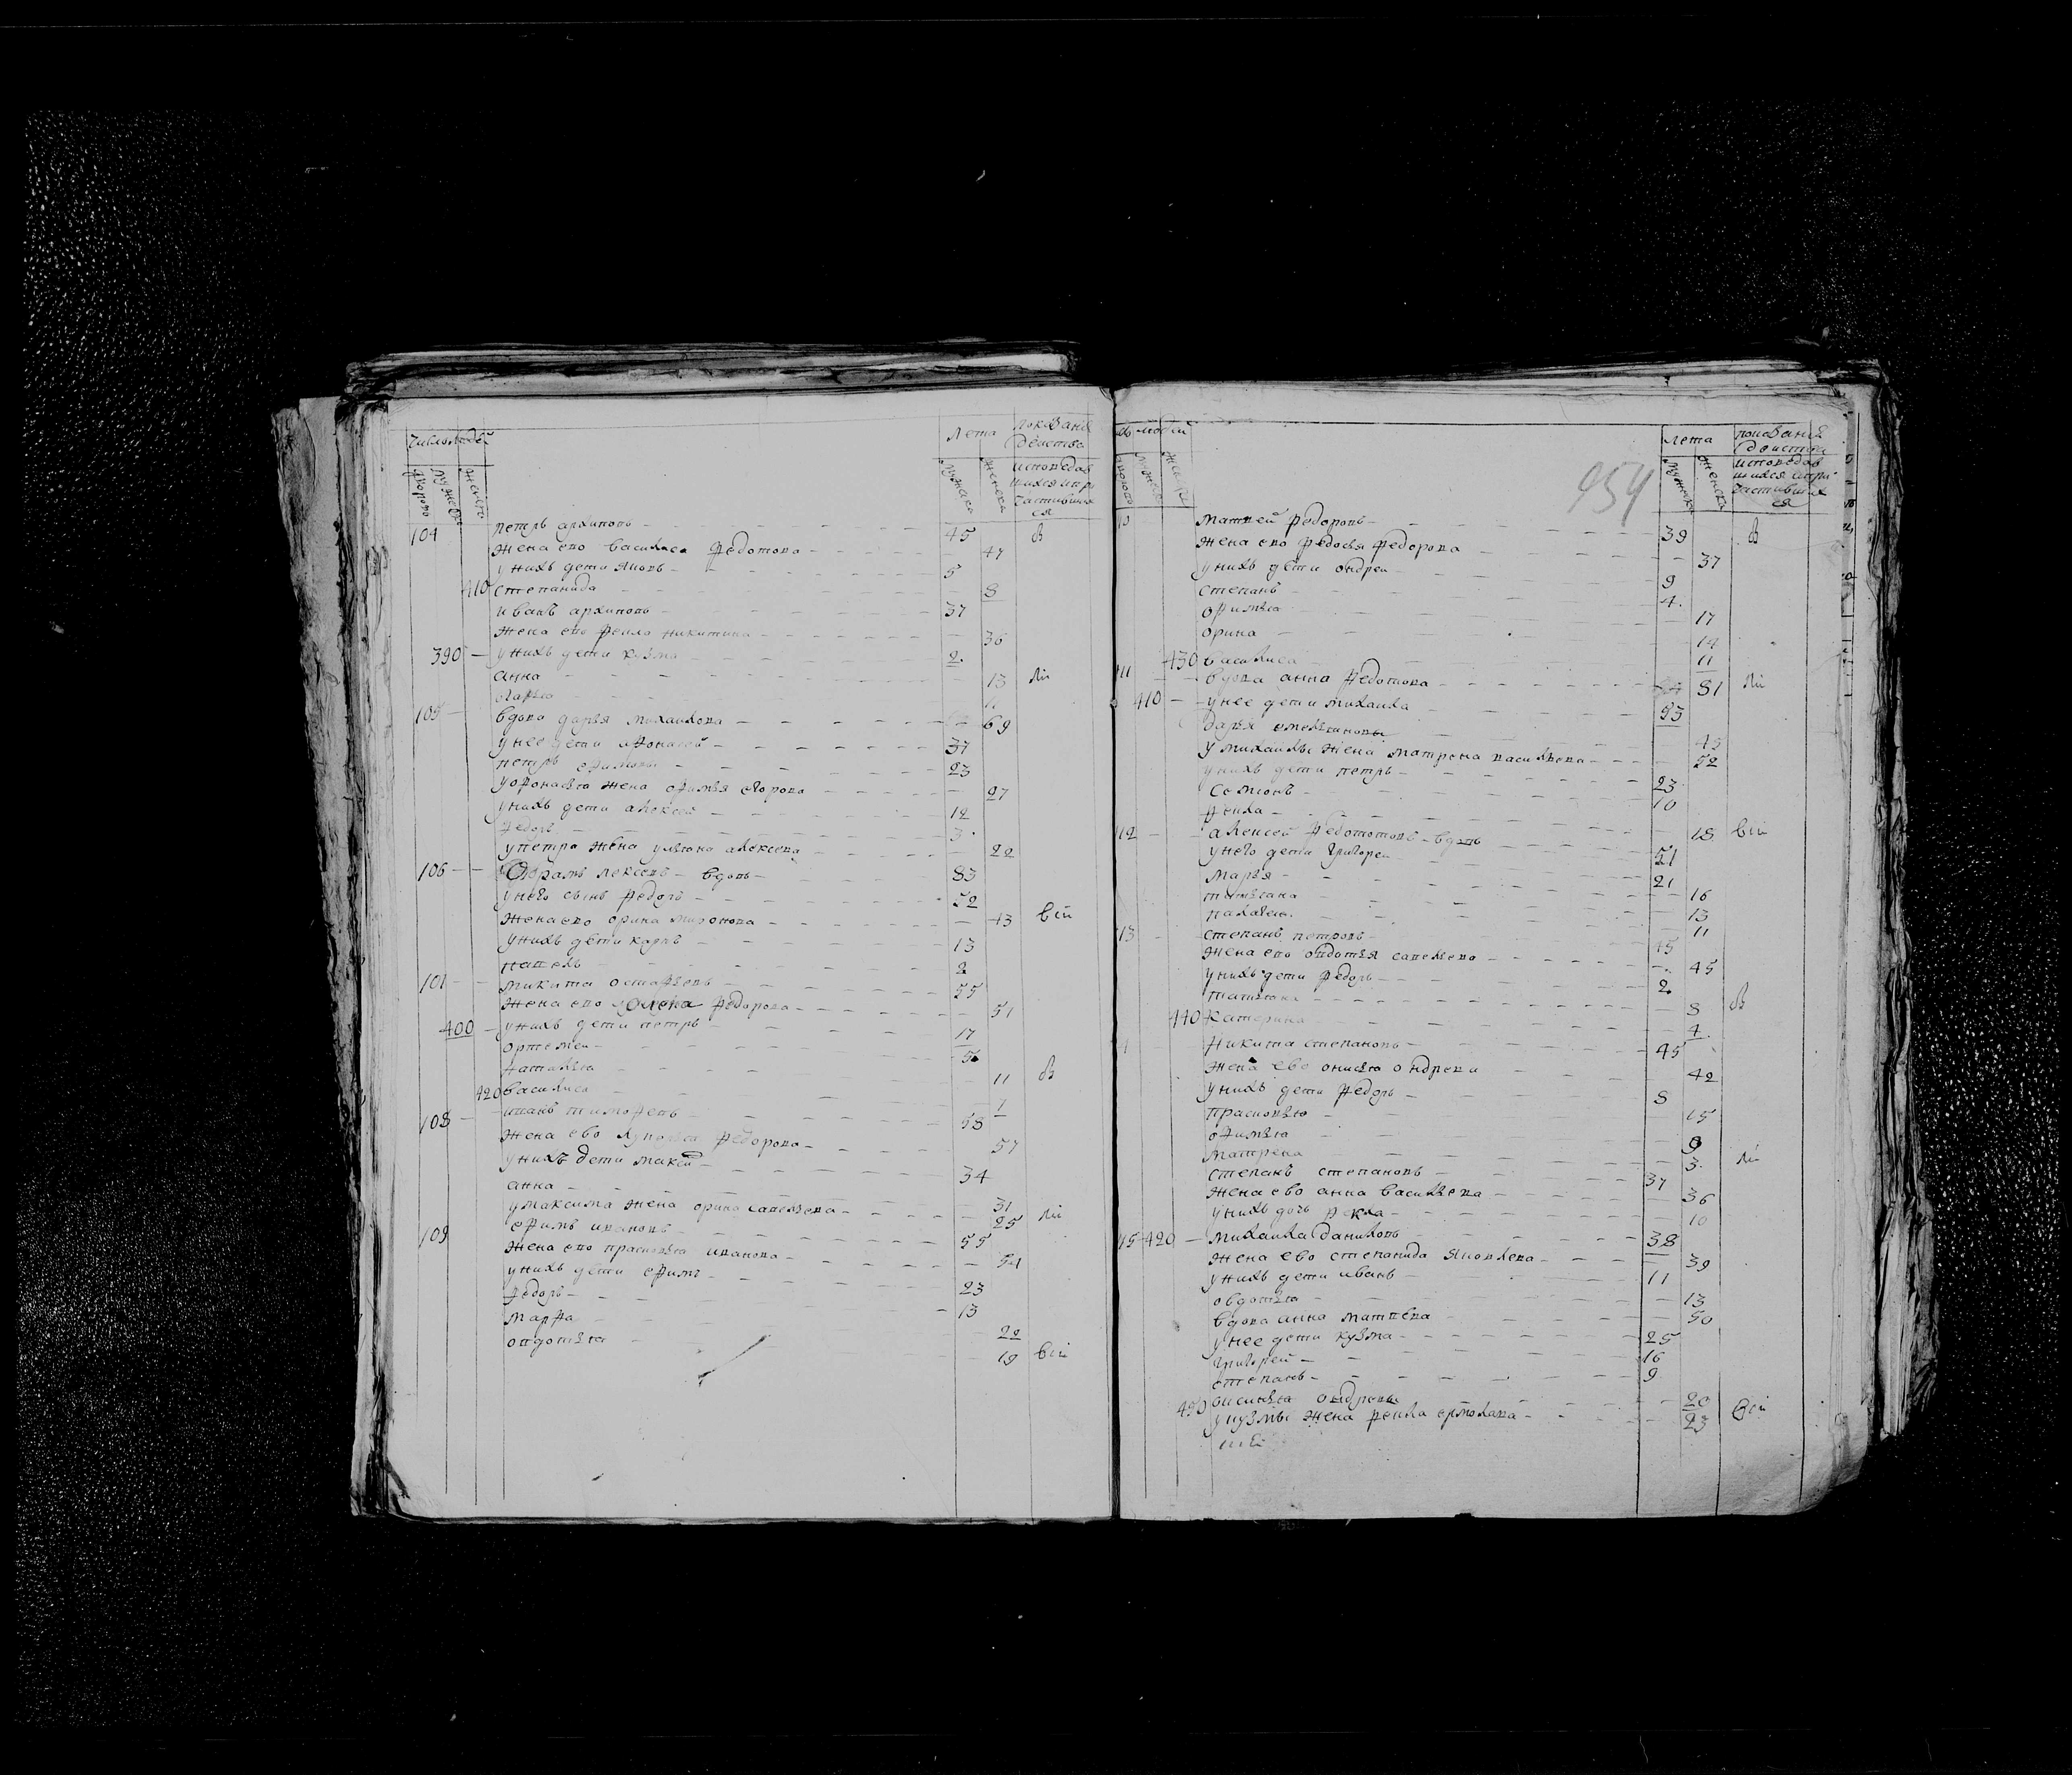 число людей
Лета
показание
действа
дворовъ
мужеска
женска
мужеска
женска
исповедав
шихся и при
частивших
ся
104 петръ архиповъ 45 в
жена ево василиса федотова 47
у нихъ дети яковъ 5
410 степанида 8
иванъ архиповъ 37
жена ево фекла никитина 36
390 у нихъ дети кузма 2
анна 13 ли
105 вдова дарья михаилова 69
у нее дети афонасей 37
петръ ефимовы 23
у афонасья жена офимья егорова 27
у нихъ дети алексей 12
федоръ 3
у петра жена ульяна алексева 22
106 Абрамъ лексевъ вдовъ 83
у него сынъ федоръ 52
жена ево орина миронова 43 вси
у нихъ дети карпъ 13
павелъ 2
107 микита остафьевъ 55
жена ево олена федорова 51
400 у нихъ дети петръ 17
ортемей 5
наталья 11 в
420 василиса 7
108 иванъ тимофевъ 58
жена ево федорова 57
у нихъ дети максим 34
анна 31
у максима жена орина савельева 25 ли
109 ефимъ ивановъ 55
жена ево прасковья иванова 54
у нихъ дети ефимъ 23
федоръ 13
марфа 22
овдотья 19 вси
людей
Лета
показания
действа
мужеска
женска
исповедав
шихся и при
частивших
ся
954
матвей федоровъ 39 в
жена ево федосья федорова 37
у нихъ дети ондреи 9
степанъ 4
офимья 17
орина 14
430 василиса 11
111 вдова анна федотова 81 ли
410 у нее дети михаила 53
дарья емельяновы 45
у михаилы жена матрена васильева 52
у нихъ дети петръ 23
семионъ 10
фекла 18 вси
112 алексей федототовъ вдовъ 51
у него дети григореи 21
марья 16
татьяна 13
палагея 11
13 степанъ петровъ 45
жена ево овдотья савельева 45
у нихъ дети федоръ 2
татьяна 8 в
440 катерина 4
никита степановъ 45
жена ево онисья ондреева 42
у нихъ дети федоръ 8
прасковья 15
офимья 9
матрена 3 ли
степанъ степановъ 37
жена ево анна васильева 36
у нихъ дочь фекла 10
15 420 михаила даниловъ 38
жена ево степанида яковлева 39
у нихъ дети иванъ 11
овдотья 13
вдова анна матвева 50
у нее дети кузма 25
григорей 16
степанъ 9
450 ондревы 20
у кузмы жена фекла ермолава 23 вси